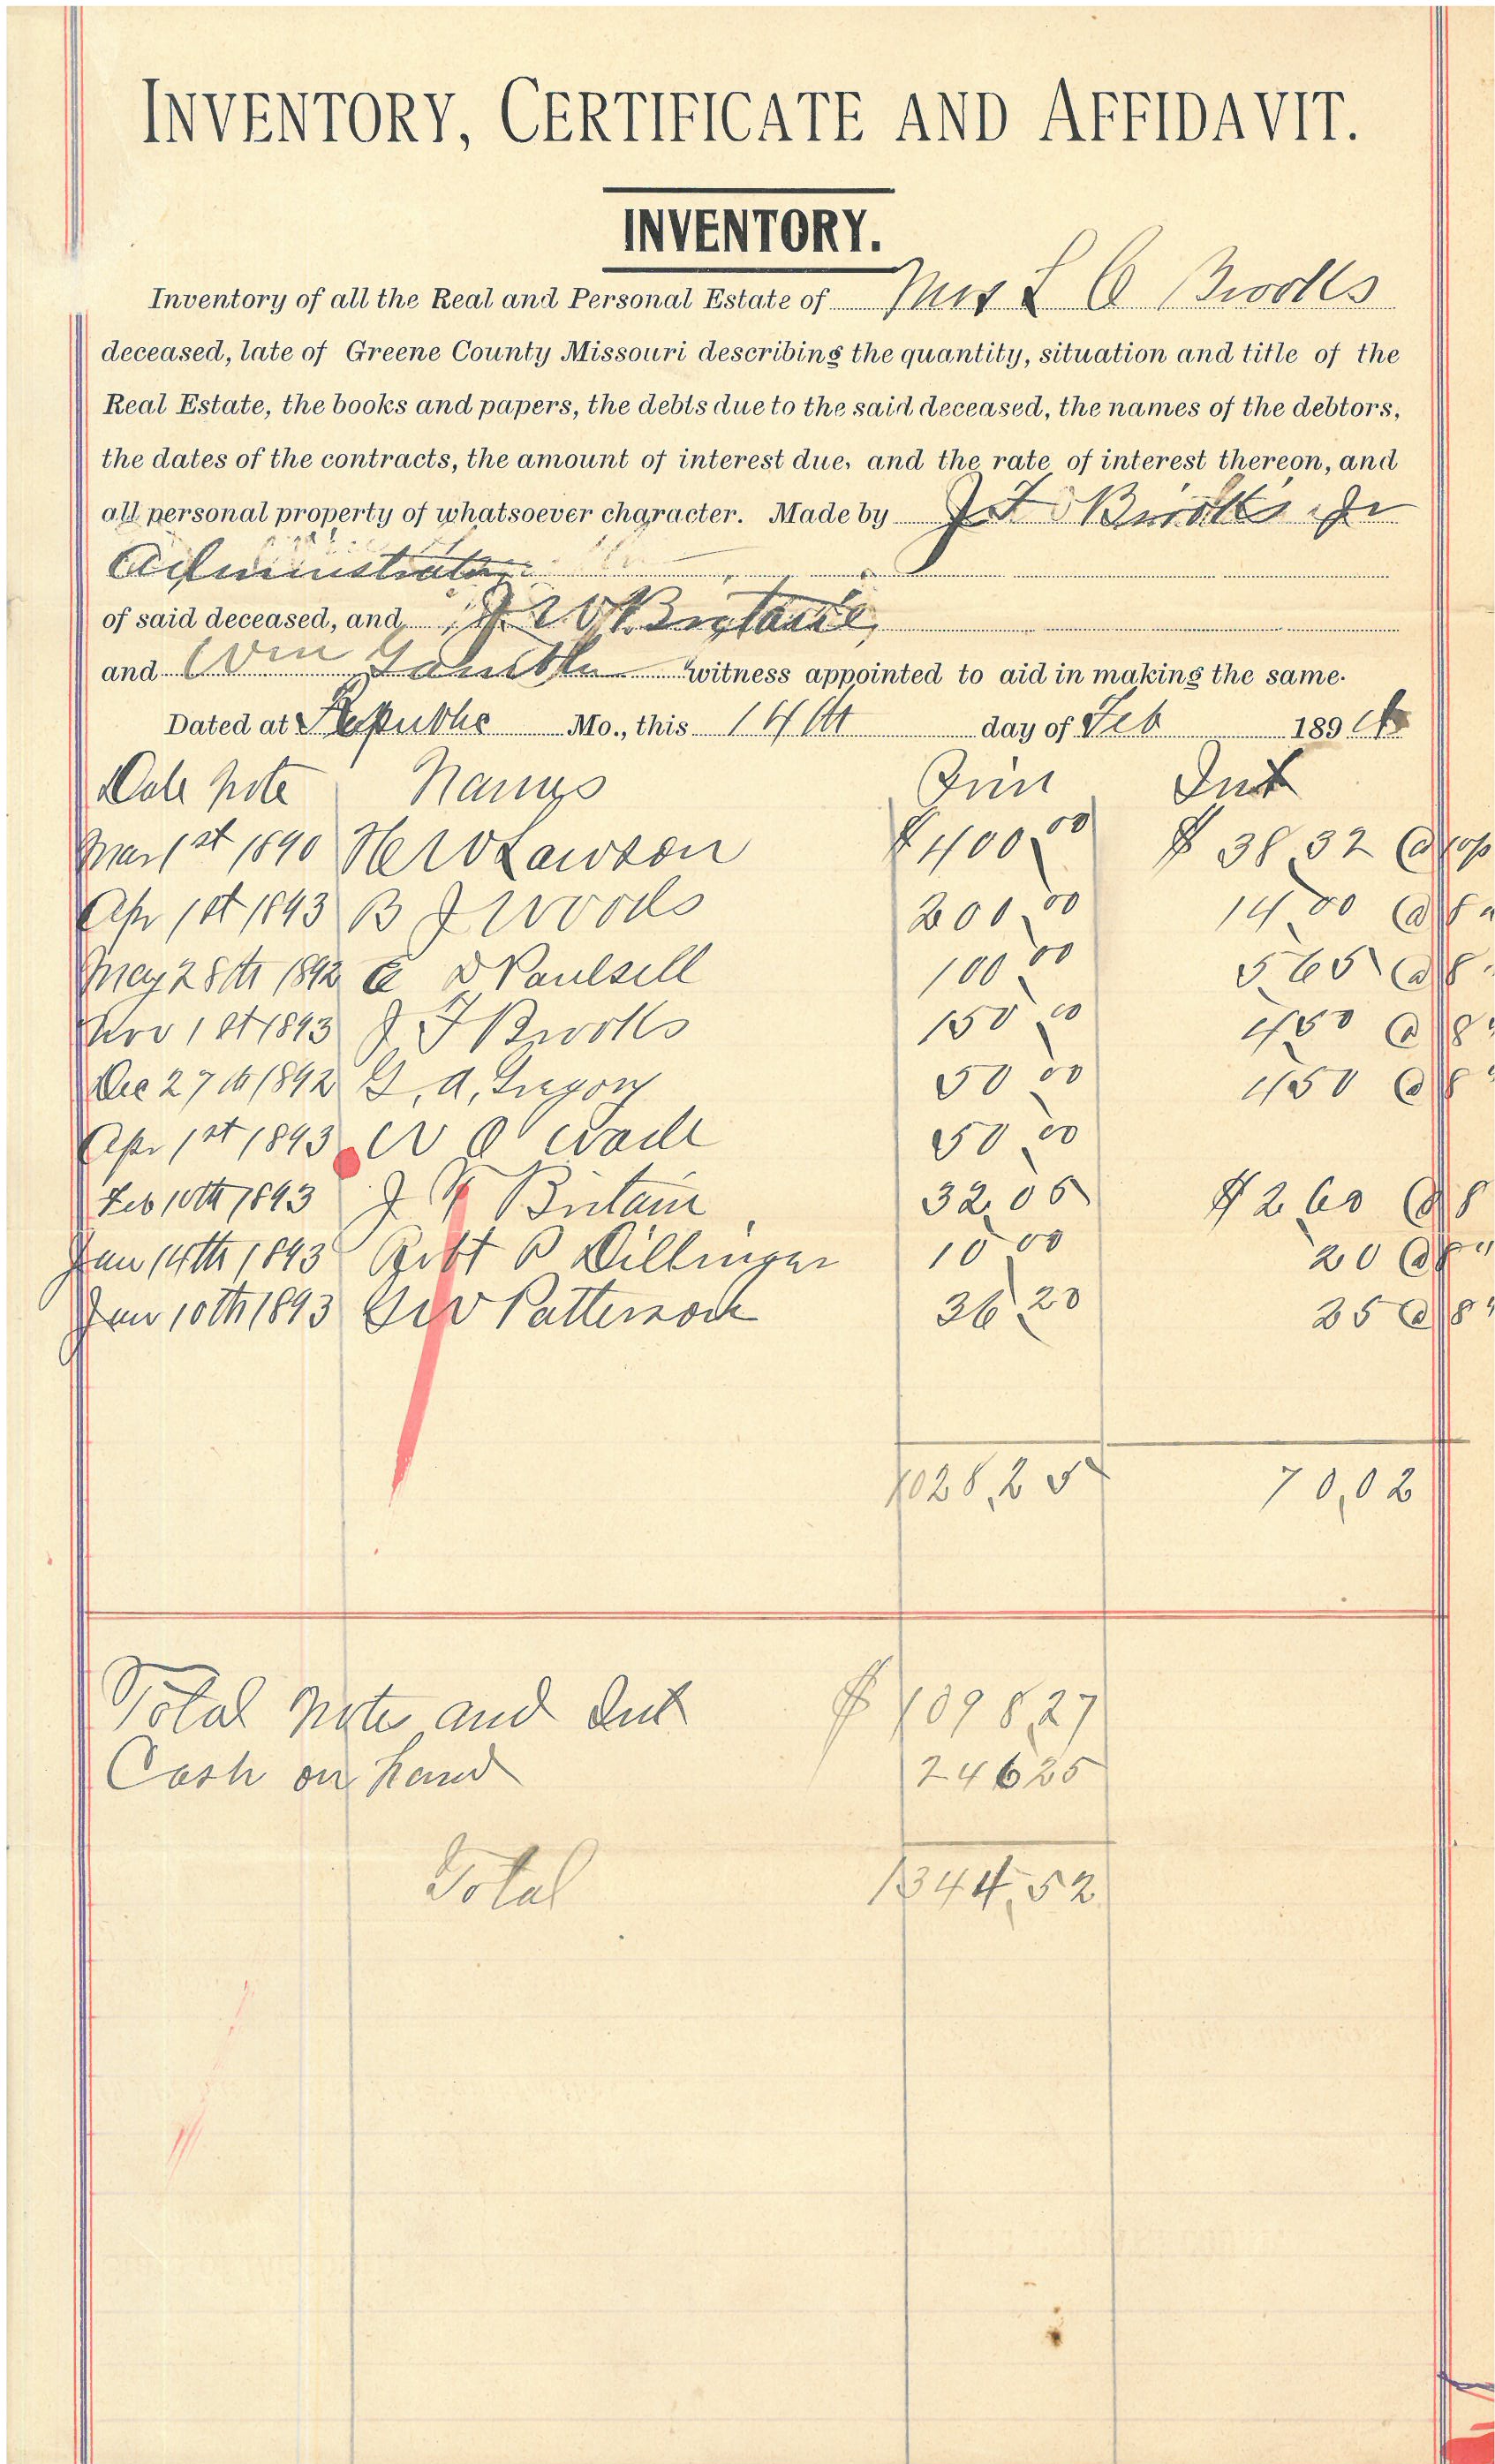 INVENTORY, CERTIFICATE AND AFFIDAVIT.
INVENTORY.
Inventory of all the Real and Personal Estate of Mrs L C Brooks
deceased, late of Greene County Missouri describing the quantity, situation and title of the
Real Estate, the books and papers, the debts due to the said deceased, the names of the debtors,
the dates of the contracts, the amount of interest due, and the rate of interest thereon, and
all personal property of whatsoever character. Made by J F Brooks Jr
Administrator
of said deceased, and J W Britain
and Wm Gamble witness appointed to aid in making the same.
Dated at Republic Mo., this 14th day of Feb 1894
Date Note Names Prin Int
Mar 1st 1890 H W Lawson $400,00 $ 38,32 @ 10
Apr 1st 1893 B J Woods 200,00 14,00 @ 8 "
May 28th 1892 E D Paulsell 100,00 5,65 @ 8 "
Nov 1st 1893 J F Brooks 150,00 4,50 @ 8 "
Dec 27th 1892 G. A. Gregory 50,00 4,50 @ 8 "
Apr 1st 1893 W O Wade 50,00
Feb 10th 1893 J F Britain 32,05 $ 2,60 @ 8
Jan 14th 1893 Robt P Dillinger 10,00 20 @ 8 "
Jan 10th 1893 G W Patterson 36,20 25 @ 8 "
1028,25 70,02
Total Note and Int $ 1098,27
Cash on hand 24625
Total 1344,52